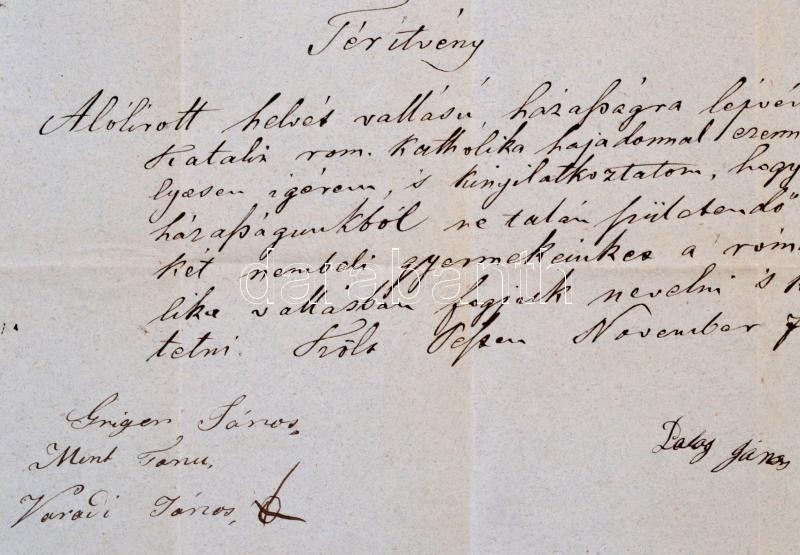 Téritvény
Alólirott helvét vallású, házaſságra lépvén
Katalin rom. katholika hajadonnal ezenn
lyesen igérem, s kinyilatkoztatom, hogy
házaſságunkból ne talán születendő
két nembeli gyermekeinket a róm
lika vallásban fogjuk nevelni s k
tetni. Költ Pesten November 7
Griger János,
Mint Tanu,
Dalos János
Varadi János,
darabanth